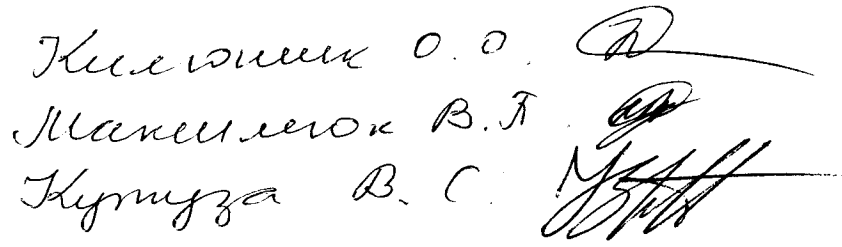 Килюшик О.О.
Максимюк В.П.
Кутуза В.С.